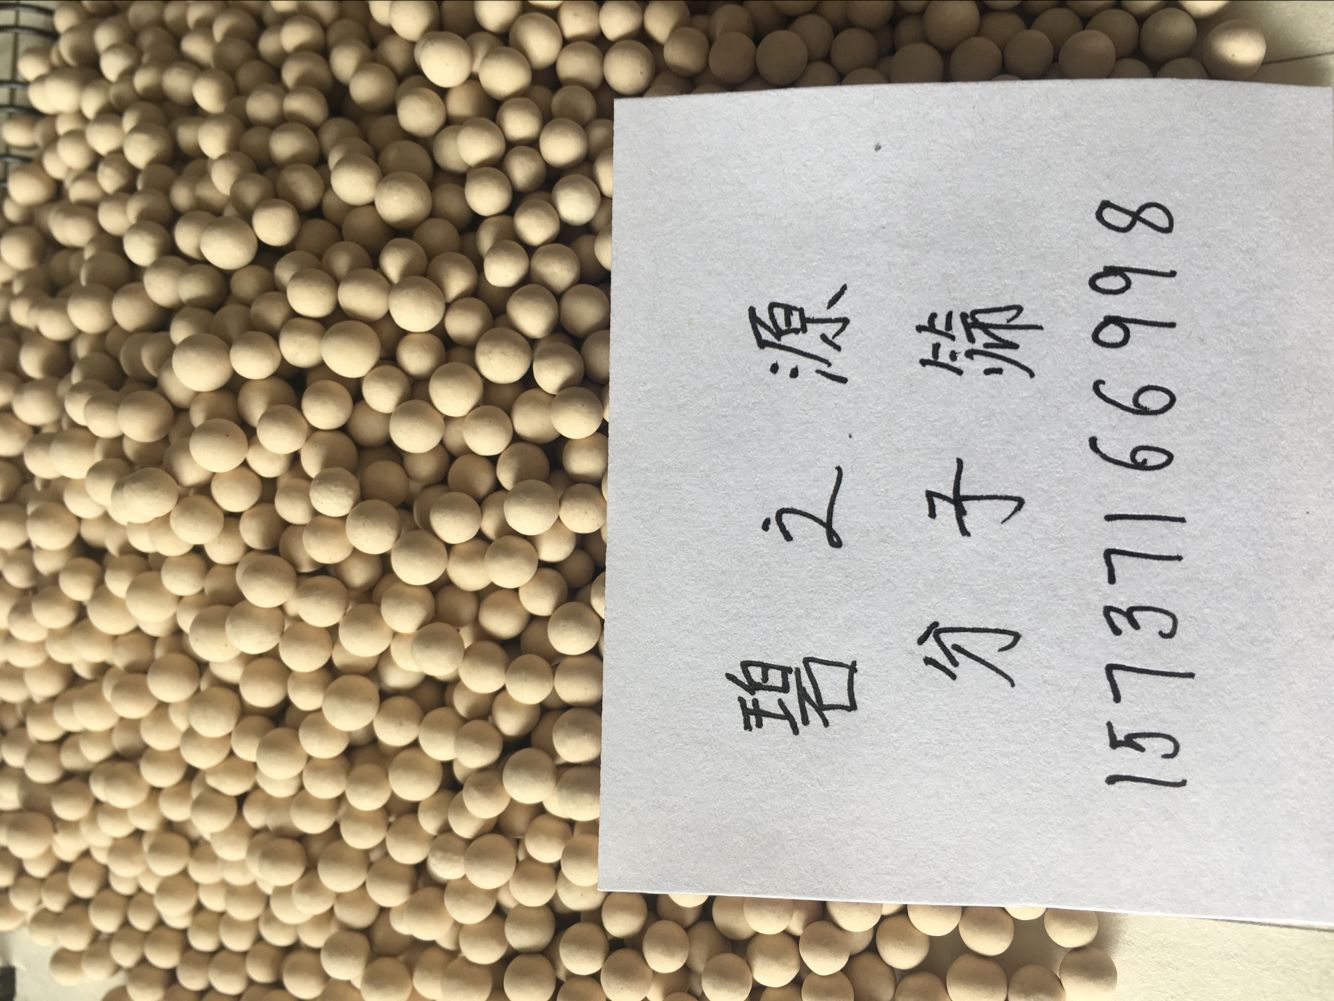 碧之源
分子筛
15737166998